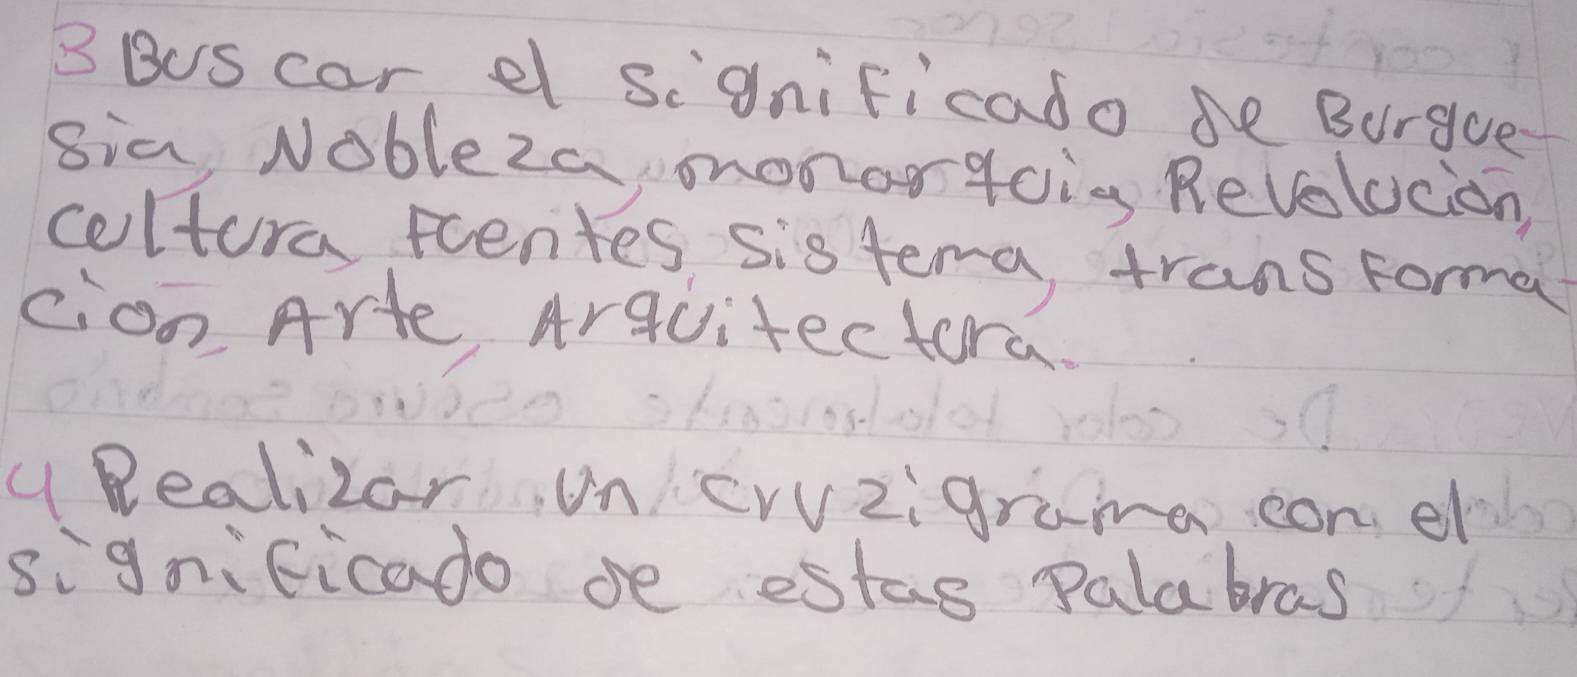 3 Buscar el significado de Burgue-
sia, Nobleza, monarquia, Revolución,
cultura, Fuentes, sistema, transforma-
cion, Arte, Arquitectura.
4 Realizar un cruzigrama con el
significado de estas Palabras